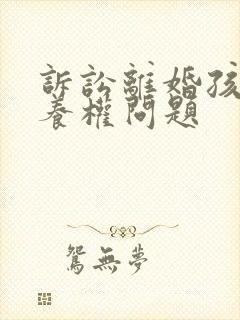 訴訟離婚孩
養權問題
鴛無夢